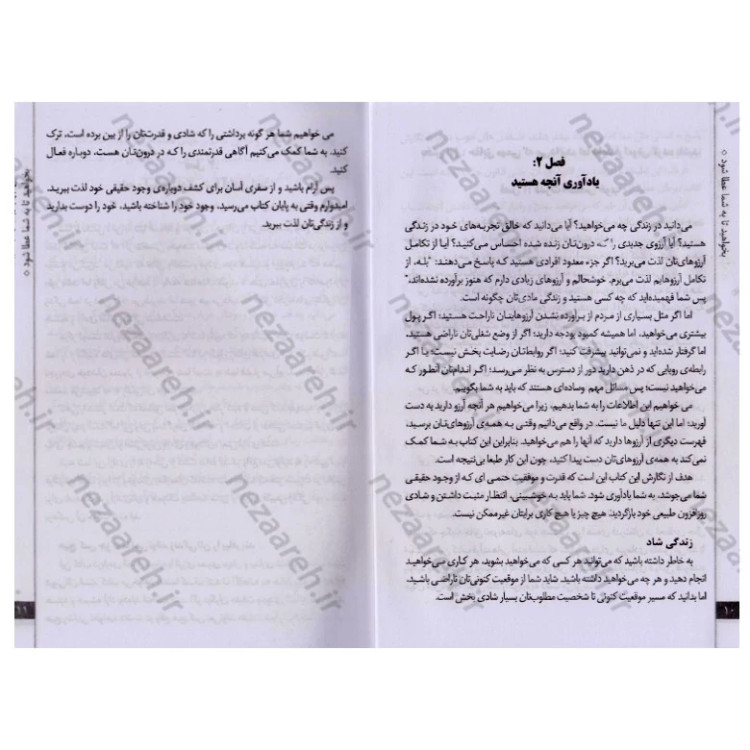 فصل ۲:
یادآوری آنچه هستید
می‌دانید در زندگی چه می‌خواهید؟ آیا می‌دانید که خالق تجربه‌های خود در زندگی
هستید؟ آیا آرزوی جدیدی را که درون‌تان زنده شده احساس می‌کنید؟ آیا از تکامل
آرزوهای‌تان لذت می‌برید؟ اگر جزء معدود افرادی هستید که پاسخ می‌دهند: "بله، از
تکامل آرزوهایم لذت می‌برم. خوشحالم و آرزوهای زیادی دارم که هنوز برآورده نشده‌اند."
پس شما فهمیده‌اید که چه کسی هستید و زندگی مادی‌تان چگونه است.
اما اگر مثل بسیاری از مردم از برآورده نشدن آرزوهایتان ناراحت هستید؛ اگر پول
بیشتری می‌خواهید، اما همیشه کمبود بودجه دارید؛ اگر از وضع شغلی‌تان ناراضی هستید،
اما گرفتار شده‌اید و نمی‌توانید پیشرفت کنید؛ اگر روابط‌تان رضایت بخش نیست؛ یا اگر
رابطه‌ی رویایی که در ذهن دارید دور از دسترس به نظر می‌رسد؛ اگر اندام‌تان آنطور که
می‌خواهید نیست؛ پس مسائل مهم وساده‌ای هستند که باید به شما بگوییم.
می خواهیم این اطلاعات را به شما بدهیم، زیرا می‌خواهیم هر آنچه آرزو دارید به دست
آورید؛ اما این تنها دلیل ما نیست. در واقع می‌دانیم وقتی به همه‌ی آرزوهای‌تان برسید،
فهرست دیگری از آرزوها دارید که آنها را هم می‌خواهید. بنابراین این کتاب به شما کمک
نمی‌کند به همه‌ی آرزوهای‌تان دست پیدا کنید، چون این کار طبعا بی‌نتیجه است.
هدف از نگارش این کتاب این است که قدرت و موفقیت حتمی ای که از وجود حقیقی
شما می‌جوشد، به شما یادآوری شود. شما باید به خوشبینی، انتظار مثبت داشتن و شادی
روزافزون طبیعی خود بازگردید. هیچ چیز یا هیچ کاری برایتان غیرممکن نیست.
زندگی شاد
به خاطر داشته باشید که می‌توانید هر کسی که می‌خواهید بشوید، هر کاری می‌خواهید
انجام دهید و هر چه می‌خواهید داشته باشید. شاید شما از موقعیت کنونی‌تان ناراضی باشید،
اما بدانید که مسیر موقعیت کنونی تا شخصیت مطلوب‌تان بسیار شادی بخش است.
بخواهید تا به شما عطا شود
۱۰
می خواهیم شما هر گونه برداشتی را که شادی و قدرت‌تان را از بین برده است، ترک
کنید. به شما کمک می‌کنیم آگاهی قدرتمندی را که در درون‌تان هست، دوباره فعال
کنید.
پس آرام باشید و از سفری آسان برای کشف دوباره‌ی وجود حقیقی خود لذت ببرید.
امیدوارم وقتی به پایان کتاب می‌رسید، وجود خود را شناخته باشید، خود را دوست بدارید
و از زندگی‌تان لذت ببرید.
بخواهید تا به شما عطا شود
۱۱
nezaareh.ir
nezaareh.ir
nezaareh.ir
nezaareh.ir
nezaareh.ir
nezaareh.ir